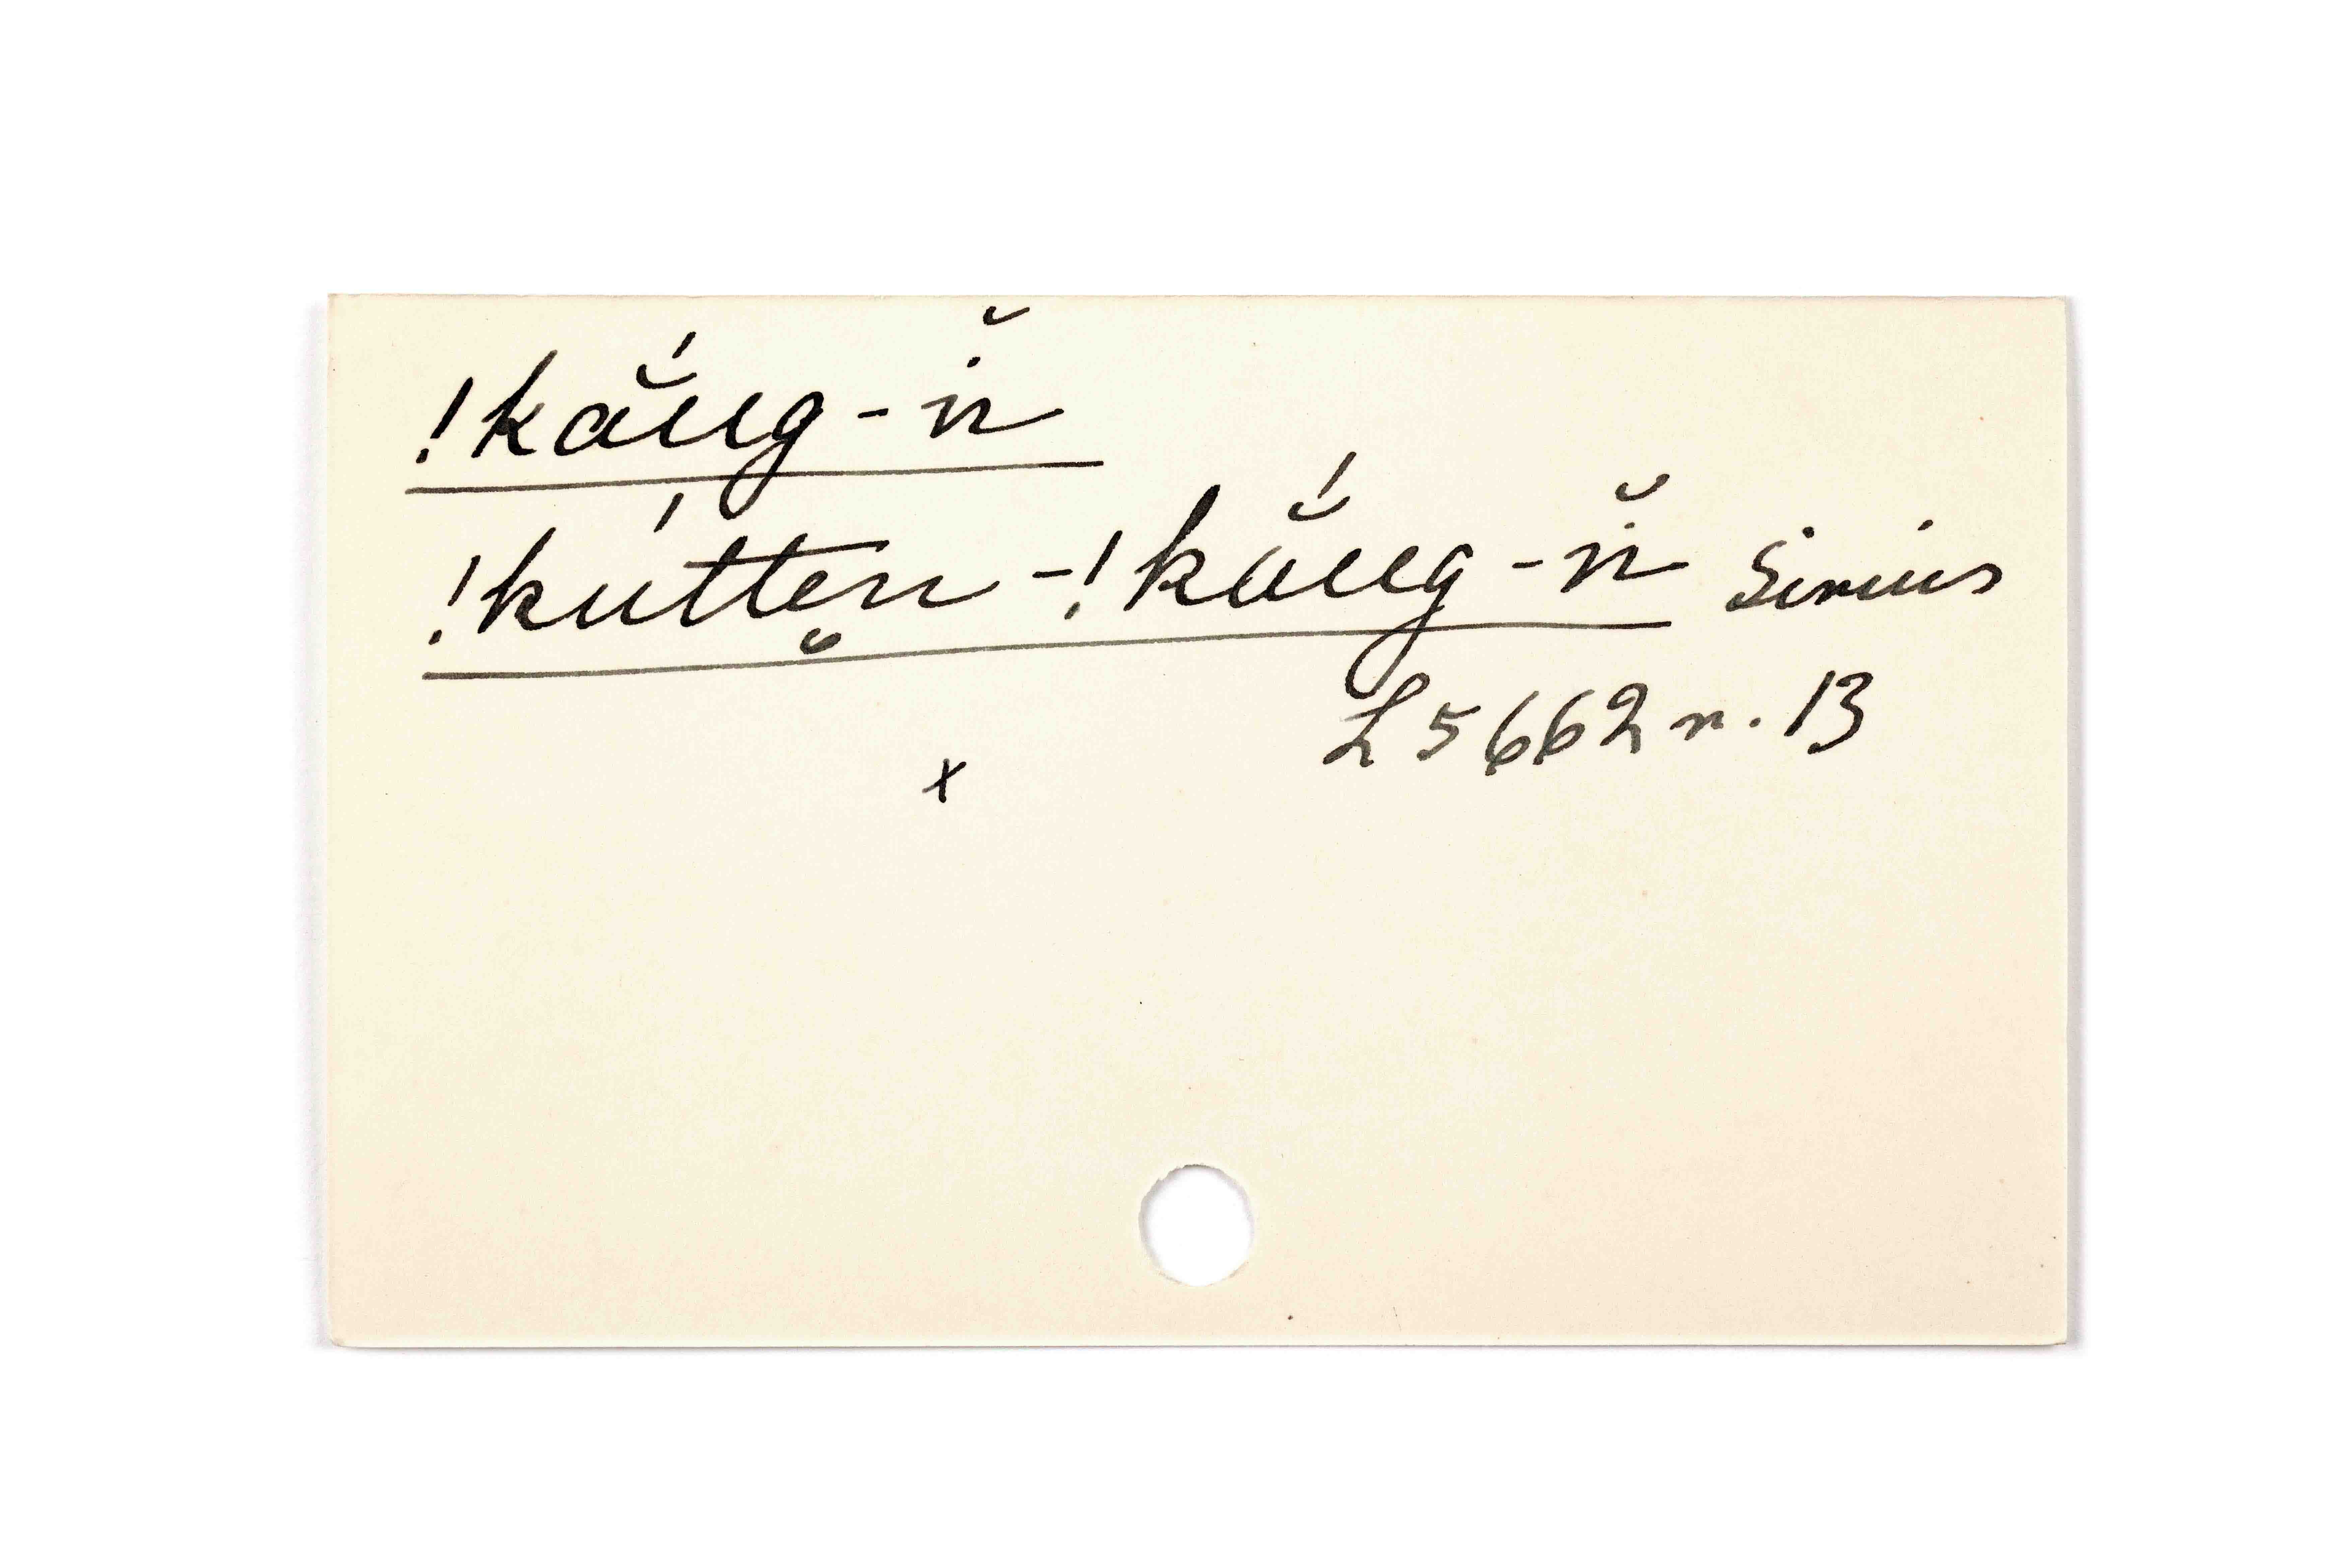 !kā̆́ŭg-ĭn
!kútte̥n-!kā̆́ŭg-ĭn Sirius
L 5662 r. 13
x